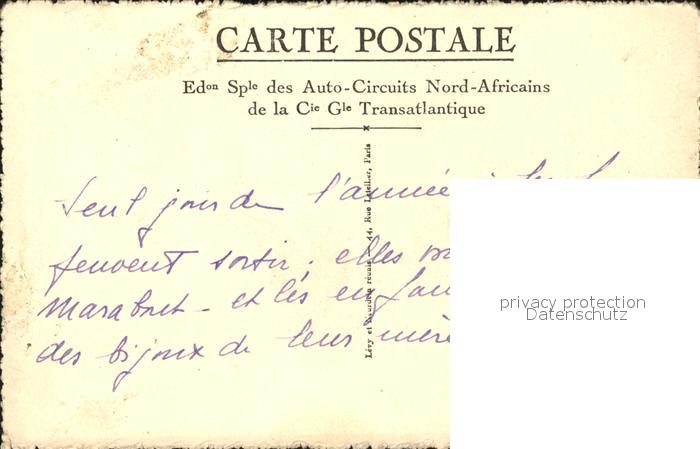 CARTE POSTALE
Edon Sple des Auto-Circuits Nord-Africains
de la Cie Gle Transatlantique
Lévy et Neurdein réunis, 44, Rue Letellier, Paris
Seul jour de l'année
peuvent sortir; elles
Marabout - et les enfan
des bijoux de leur mère
privacy protection
Datenschutz